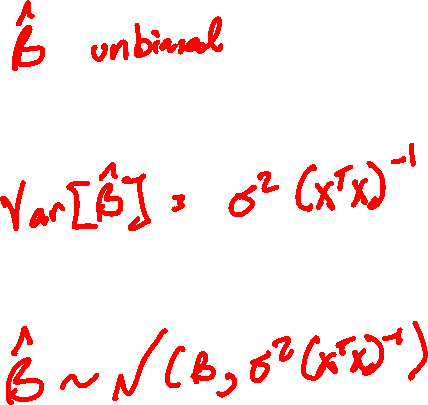 β̂ unbiased
Var[β̂] = σ² (XᵀX)⁻¹
β̂ ~ N(β, σ²(XᵀX)⁻¹)